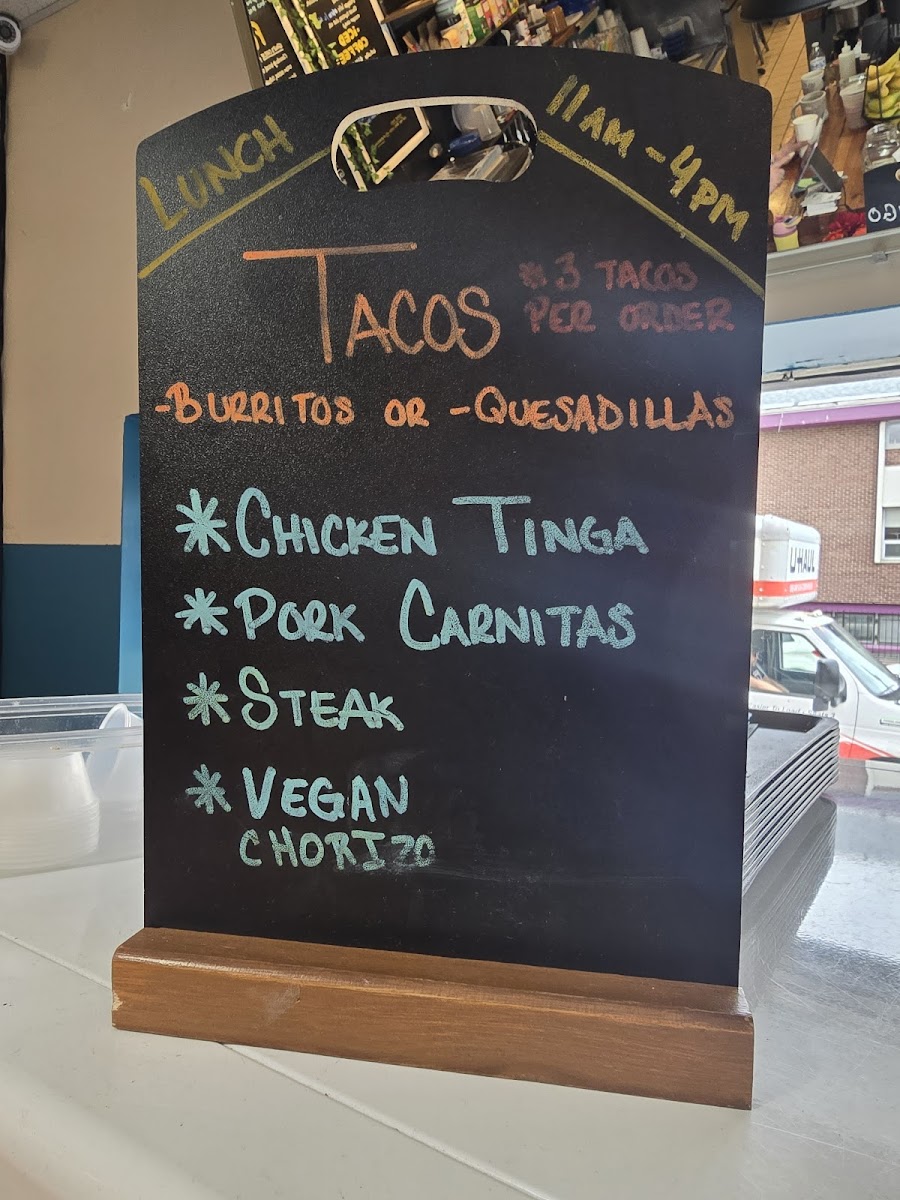 LUNCH
11AM - 4PM
TACOS
* 3 TACOS
PER ORDER
-BURRITOS OR -QUESADILLAS
* CHICKEN TINGA
* PORK CARNITAS
* STEAK
* VEGAN
CHORIZO
U-HAUL
ICED
COFFEE: